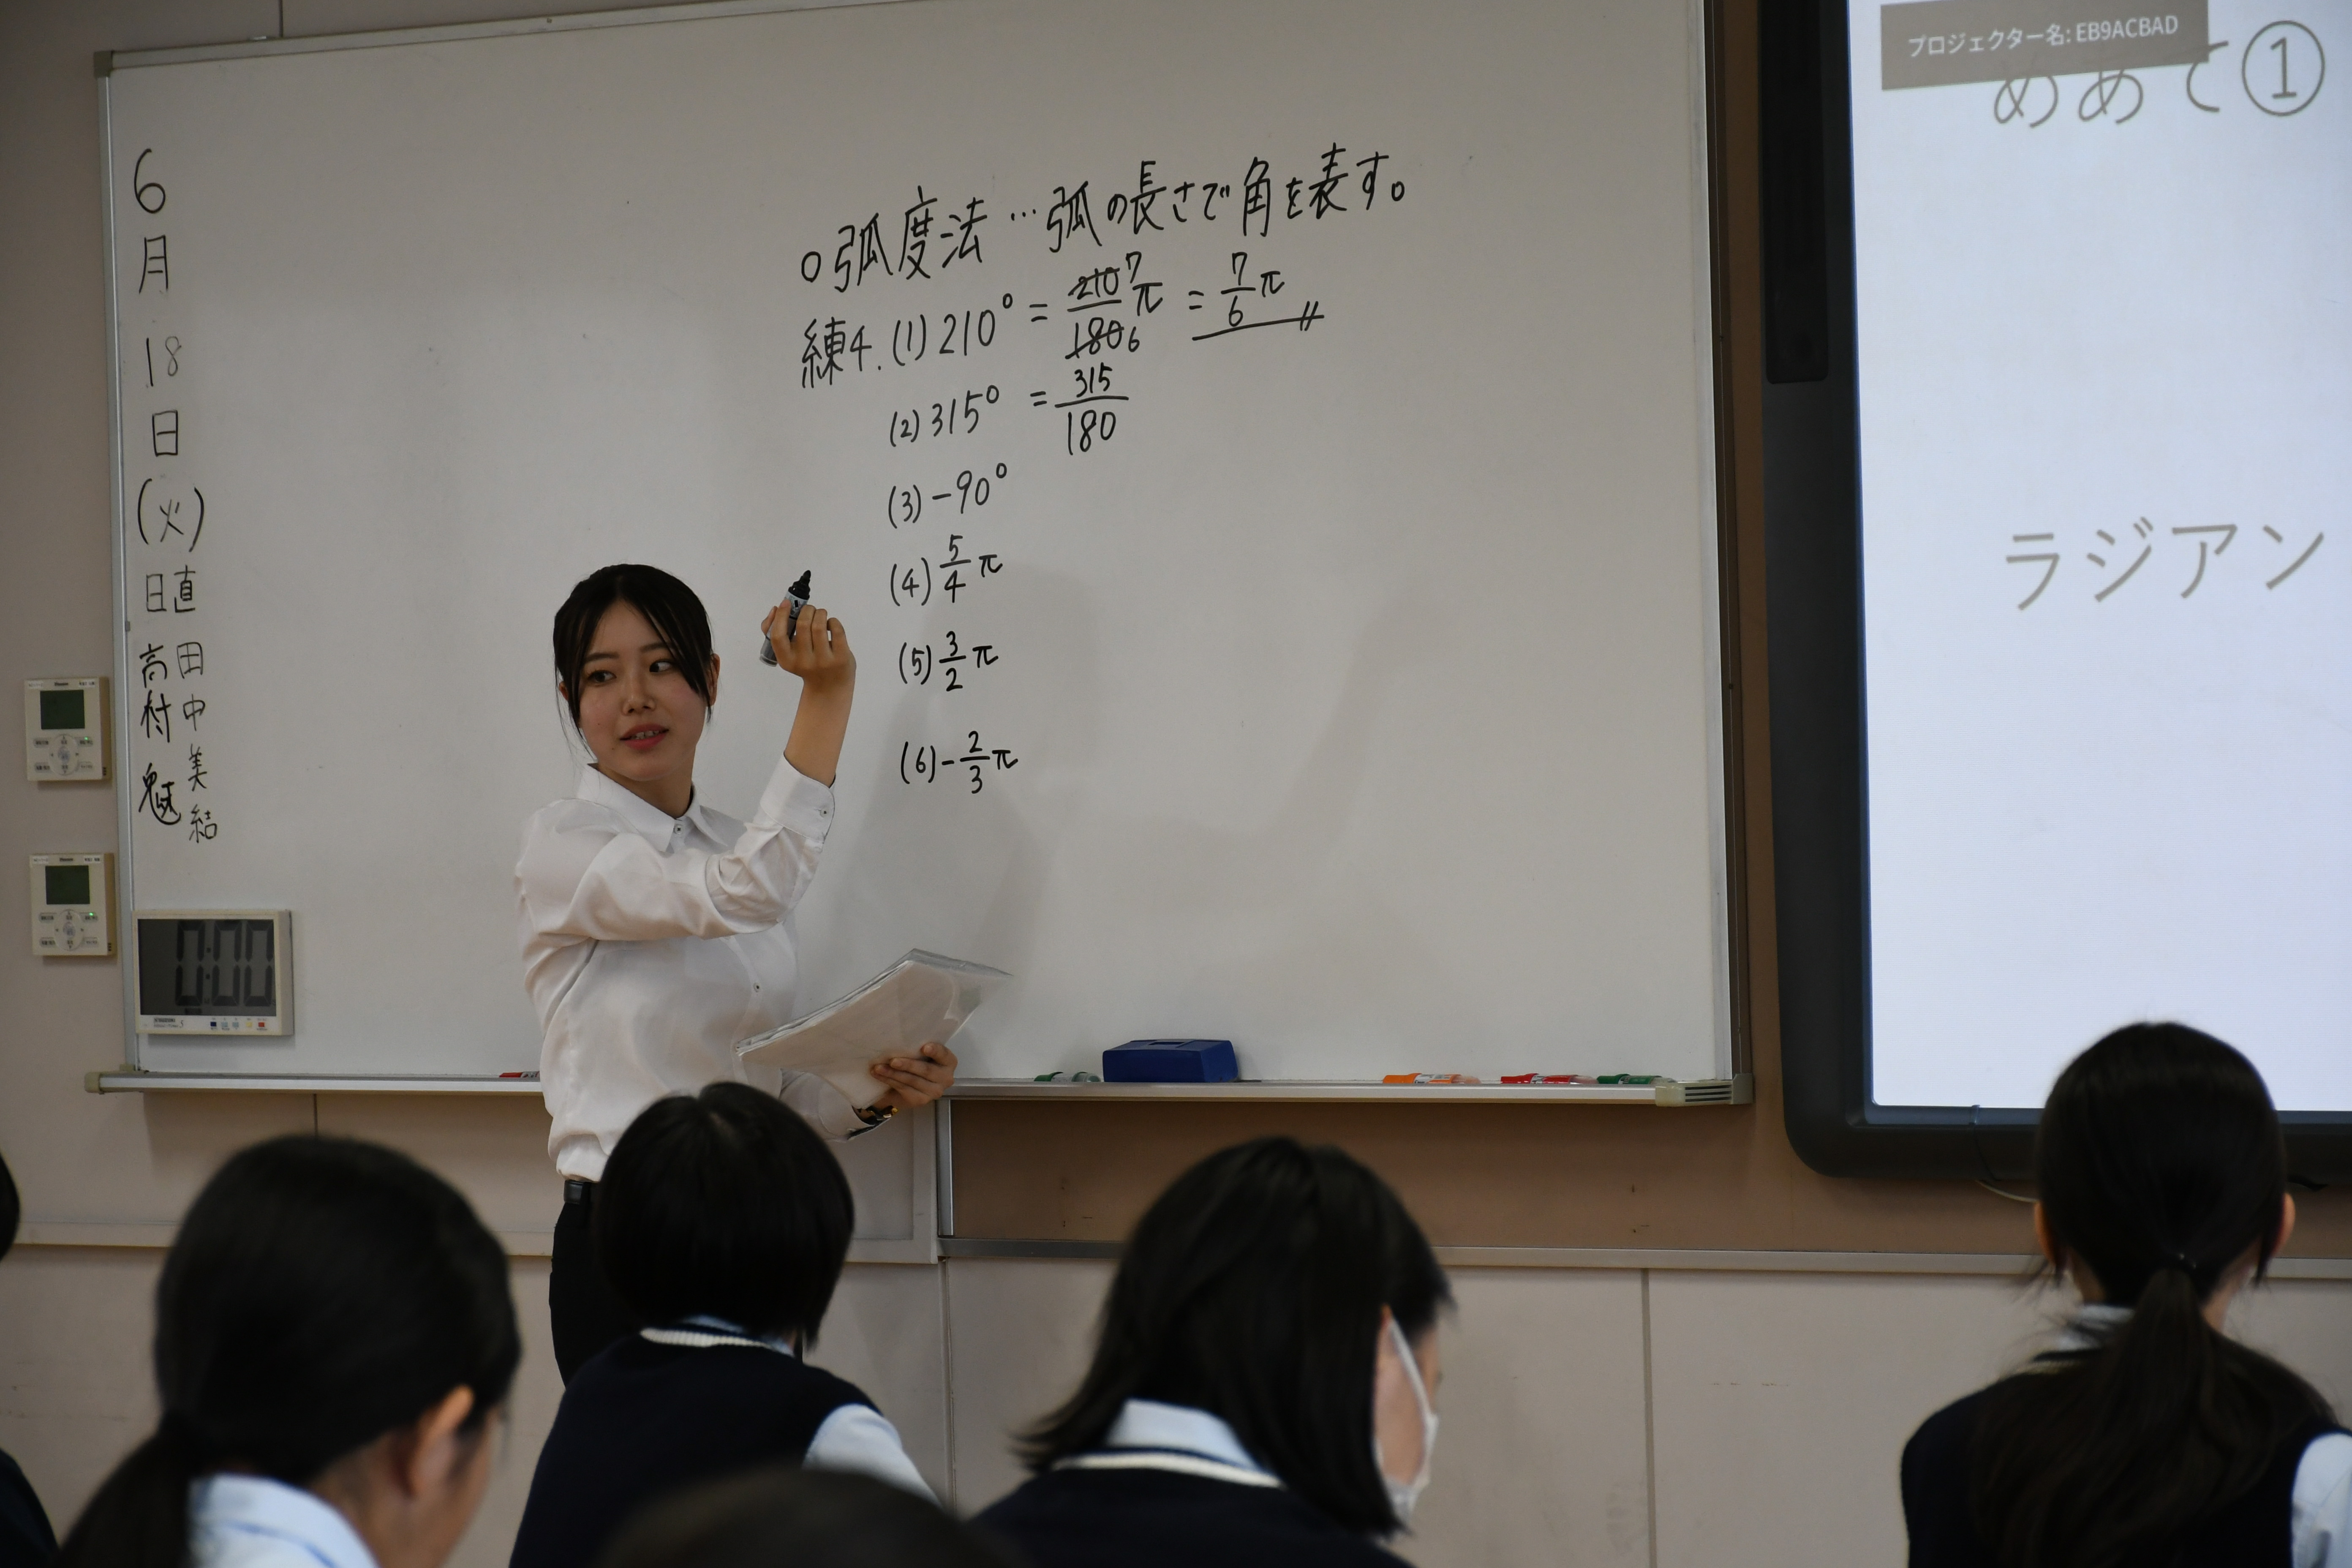 6月18日(火)
日直
田中美結
高村魁
○弧度法…弧の長さで角を表す。
練4. (1) 210° = 210/180 7/6 π = 7/6 π
(2) 315° = 315/180
(3) -90°
(4) 5/4 π
(5) 3/2 π
(6) -2/3 π
0:00
プロジェクター名: EB9ACBAD
めあて①
ラジアン